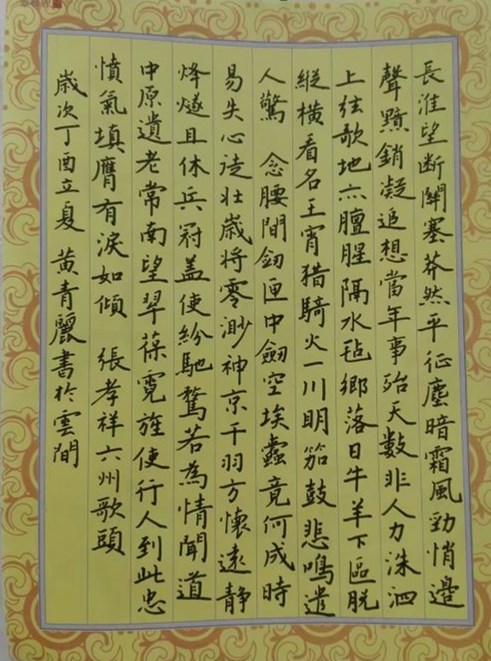 長淮望斷關塞莽然平征塵暗霜風勁悄邊
聲黯銷凝追想當年事殆天數非人力洙泗
上弦歌地亦膻腥隔水氈鄉落日牛羊下區脫
縱橫看名王宵猎騎火一川明笳鼓悲鳴遣
人驚 念腰間劒匣中劒空埃蠹竟何成時
易失心徒壯歲將零渺神京干羽方懷遠靜
烽燧且休兵冠盖使紛馳騖若為情聞道
中原遺老常南望翠葆霓旌使行人到此忠
憤氣填膺有淚如傾 張孝祥六州歌頭
歲次丁酉立夏 黄青麗書於雲間